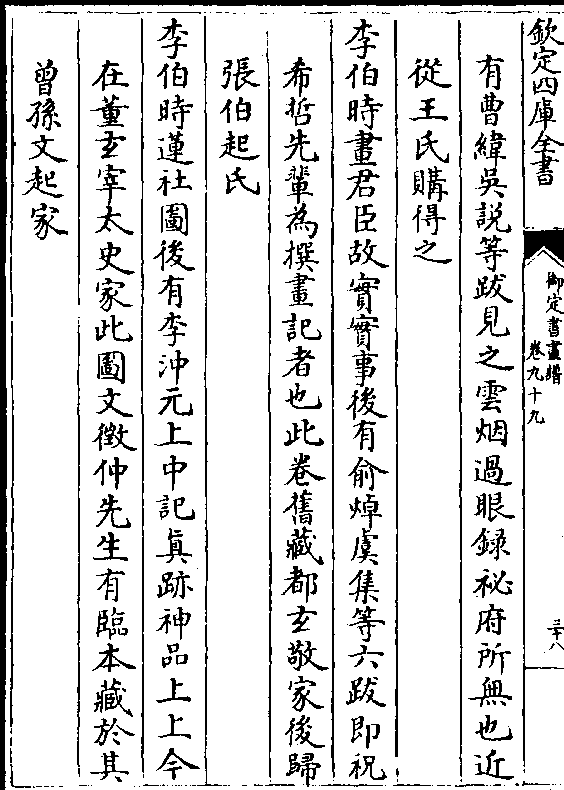 欽定四庫全書
御定書畫譜
卷九十九
三十八
有曹緯吳說等跋見之雲烟過眼録祕府所無也近
從王氏購得之
李伯時畫君臣故實實事後有俞焯虞集等六跋即祝
希哲先輩為撰畫記者也此卷舊藏都玄敬家後歸
張伯起氏
李伯時蓮社圖後有李沖元上中記真跡神品上上今
在董玄宰太史家此圖文徴仲先生有臨本藏於其
曾孫文起家